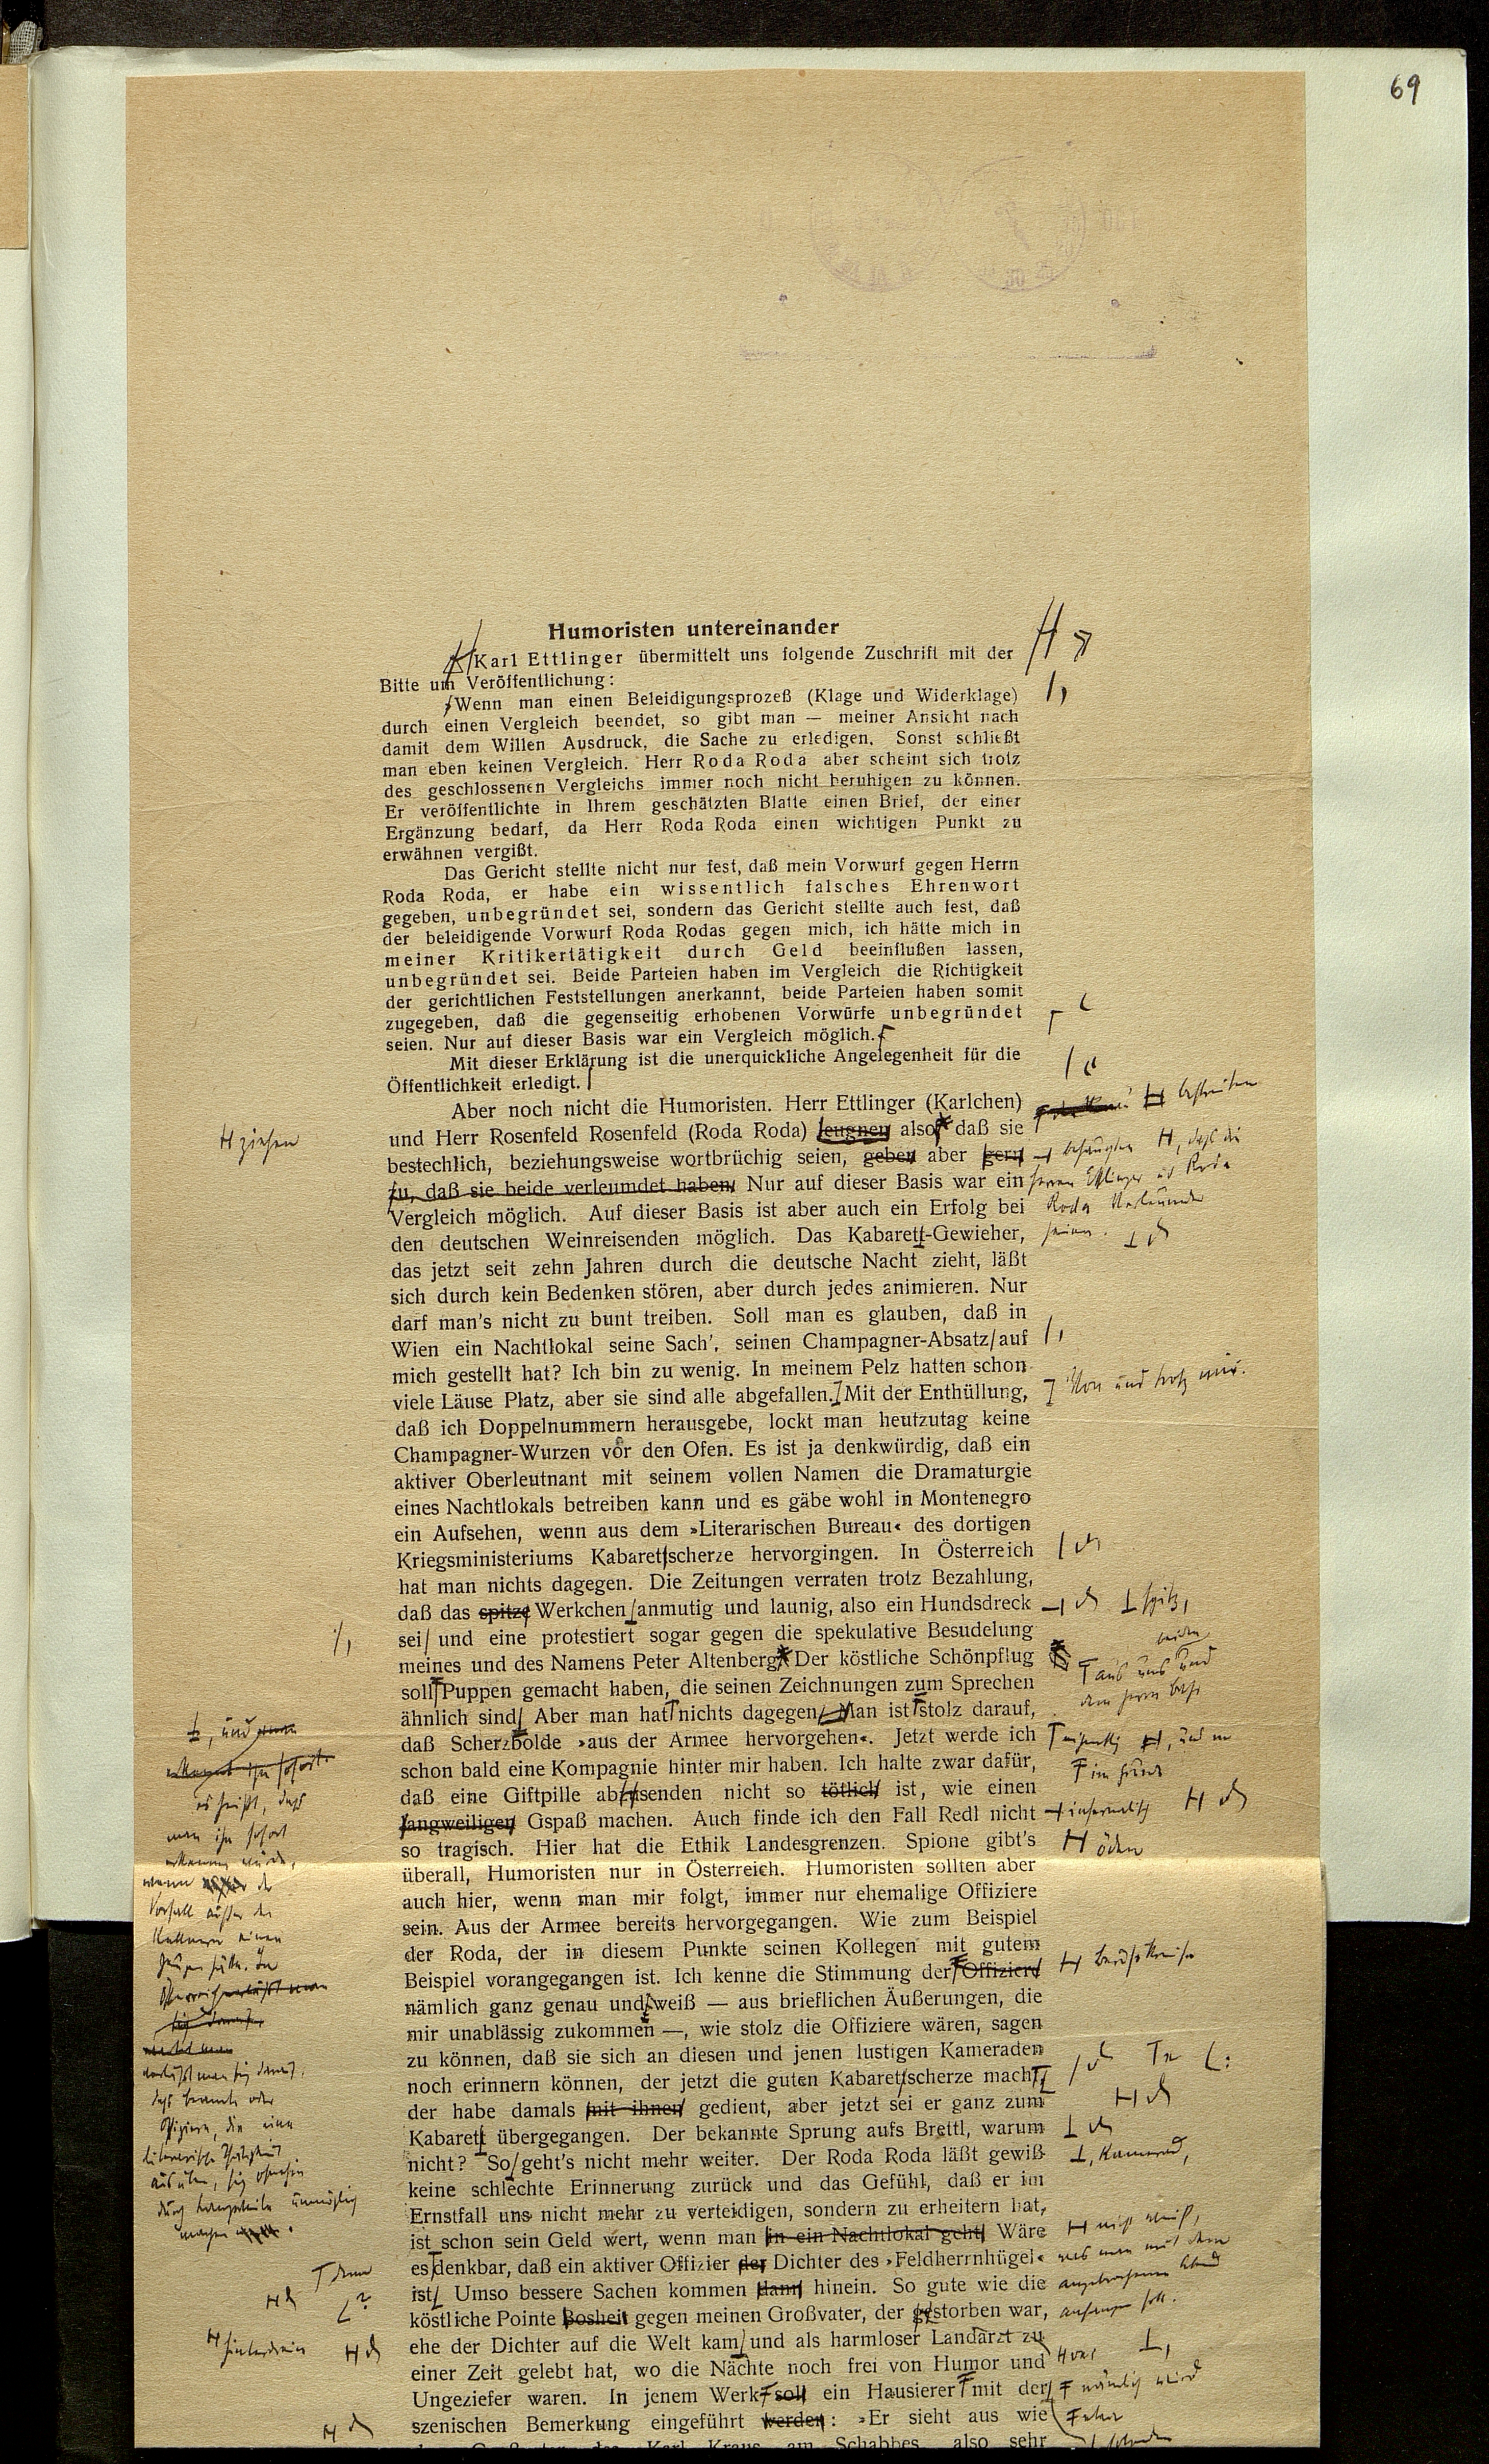 69
Humoristen untereinander
Karl Ettlinger übermittelt uns folgende Zuschrift mit der
Bitte um Veröffentlichung:
Wenn man einen Beleidigungsprozeß (Klage und Widerklage)
durch einen Vergleich beendet, so gibt man — meiner Ansicht nach
damit dem Willen Ausdruck, die Sache zu erledigen. Sonst schließt
man eben keinen Vergleich. Herr Roda Roda aber scheint sich trotz
des geschlossenen Vergleichs immer noch nicht beruhigen zu können.
Er veröffentlichte in Ihrem geschätzten Blatte einen Brief, der einer
Ergänzung bedarf, da Herr Roda Roda einen wichtigen Punkt zu
erwähnen vergißt.
Das Gericht stellte nicht nur fest, daß mein Vorwurf gegen Herrn
Roda Roda, er habe ein wissentlich falsches Ehrenwort
gegeben, unbegründet sei, sondern das Gericht stellte auch fest, daß
der beleidigende Vorwurf Roda Rodas gegen mich, ich hätte mich in
meiner Kritikertätigkeit durch Geld beeinflußen lassen,
unbegründet sei. Beide Parteien haben im Vergleich die Richtigkeit
der gerichtlichen Feststellungen anerkannt, beide Parteien haben somit
zugegeben, daß die gegenseitig erhobenen Vorwürfe unbegründet
seien. Nur auf dieser Basis war ein Vergleich möglich.
Mit dieser Erklärung ist die unerquickliche Angelegenheit für die
Öffentlichkeit erledigt.
Aber noch nicht die Humoristen. Herr Ettlinger (Karlchen)
bestreiten
und Herr Rosenfeld Rosenfeld (Roda Roda) leugnen also daß sie
ziehen
bestechlich, beziehungsweise wortbrüchig seien, geben aber gern
behaupten, daß die
zu, daß sie beide verleumdet haben. Nur auf dieser Basis war ein
Herren Ettlinger und Roda
Vergleich möglich. Auf dieser Basis ist aber auch ein Erfolg bei
Roda Verleumder
den deutschen Weinreisenden möglich. Das Kabarett-Gewieher,
seien.
das jetzt seit zehn Jahren durch die deutsche Nacht zieht, läßt
sich durch kein Bedenken stören, aber durch jedes animieren. Nur
darf man's nicht zu bunt treiben. Soll man es glauben, daß in
Wien ein Nachtlokal seine Sach', seinen Champagner-Absatz auf
mich gestellt hat? Ich bin zu wenig. In meinem Pelz hatten schon
viele Läuse Platz, aber sie sind alle abgefallen. Mit der Enthüllung,
Von und trotz mir.
daß ich Doppelnummern herausgebe, lockt man heutzutag keine
Champagner-Wurzen vor den Ofen. Es ist ja denkwürdig, daß ein
aktiver Oberleutnant mit seinem vollen Namen die Dramaturgie
eines Nachtlokals betreiben kann und es gäbe wohl in Montenegro
ein Aufsehen, wenn aus dem »Literarischen Bureau« des dortigen
Kriegsministeriums Kabaretscherze hervorgingen. In Österreich
hat man nichts dagegen. Die Zeitungen verraten trotz Bezahlung,
daß das spitze Werkchen anmutig und launig, also ein Hundsdreck
spitz,
sei und eine protestiert sogar gegen die spekulative Besudelung
meines und des Namens Peter Altenberg. Der köstliche Schönpflug
aus uns beiden und
soll Puppen gemacht haben, die seinen Zeichnungen zum Sprechen
dem Herrn Bahr
ähnlich sind. Aber man hat nichts dagegen. Man ist stolz darauf,
daß Scherzbolde »aus der Armee hervorgehen«. Jetzt werde ich
schon bald eine Kompagnie hinter mir haben. Ich halte zwar dafür,
daß eine Giftpille abzusenden nicht so tötlich ist, wie einen
langweiligen Gspaß machen. Auch finde ich den Fall Redl nicht
infernalisch
so tragisch. Hier hat die Ethik Landesgrenzen. Spione gibt's
öden
überall, Humoristen nur in Österreich. Humoristen sollten aber
auch hier, wenn man mir folgt, immer nur ehemalige Offiziere
sein. Aus der Armee bereits hervorgegangen. Wie zum Beispiel
der Roda, der in diesem Punkte seinen Kollegen mit gutem
Beispiel vorangegangen ist. Ich kenne die Stimmung der Offiziere
Berufskreise
nämlich ganz genau und weiß — aus brieflichen Äußerungen, die
mir unablässig zukommen —, wie stolz die Offiziere wären, sagen
zu können, daß sie sich an diesen und jenen lustigen Kameraden
noch erinnern können, der jetzt die guten Kabaretscherze mach
der habe damals mit ihnen gedient, aber jetzt sei er ganz zum
Kabarett übergegangen. Der bekannte Sprung aufs Brettl, warum
nicht? So geht's nicht mehr weiter. Der Roda Roda läßt gewiß
, Kamerad,
keine schlechte Erinnerung zurück und das Gefühl, daß er im
Ernstfall uns nicht mehr zu verteidigen, sondern zu erheitern hat,
ist schon sein Geld wert, wenn man in ein Nachtlokal geht. Wäre
nicht weiß,
es denkbar, daß ein aktiver Offizier der Dichter des »Feldherrnhügel«
was man mit dem
denn
ist. Umso bessere Sachen kommen dann hinein. So gute wie die
angebrochenen Abend
köstliche Pointe Bosheit gegen meinen Großvater, der gestorben war,
anfangen soll.
ehe der Dichter auf die Welt kam und als harmloser Landarzt zu
einer Zeit gelebt hat, wo die Nächte noch frei von Humor und
Ungeziefer waren. In jenem Werk soll ein Hausierer mit der
nämlich wird
szenischen Bemerkung eingeführt werden: »Er sieht aus wie
der Großvater des Karl Kraus am Schabbes, also sehr
, und
es heißt, daß
man ihn sofort
erkennen würde,
wenn der
Vorfall außer den
Kellnern einen
Zeugen hätte. In
verläßt man sich darauf,
daß Beamte oder
Offiziere, die eine
literarische Tätigkeit
ausüben, sich ohnehin
unmöglich
machen